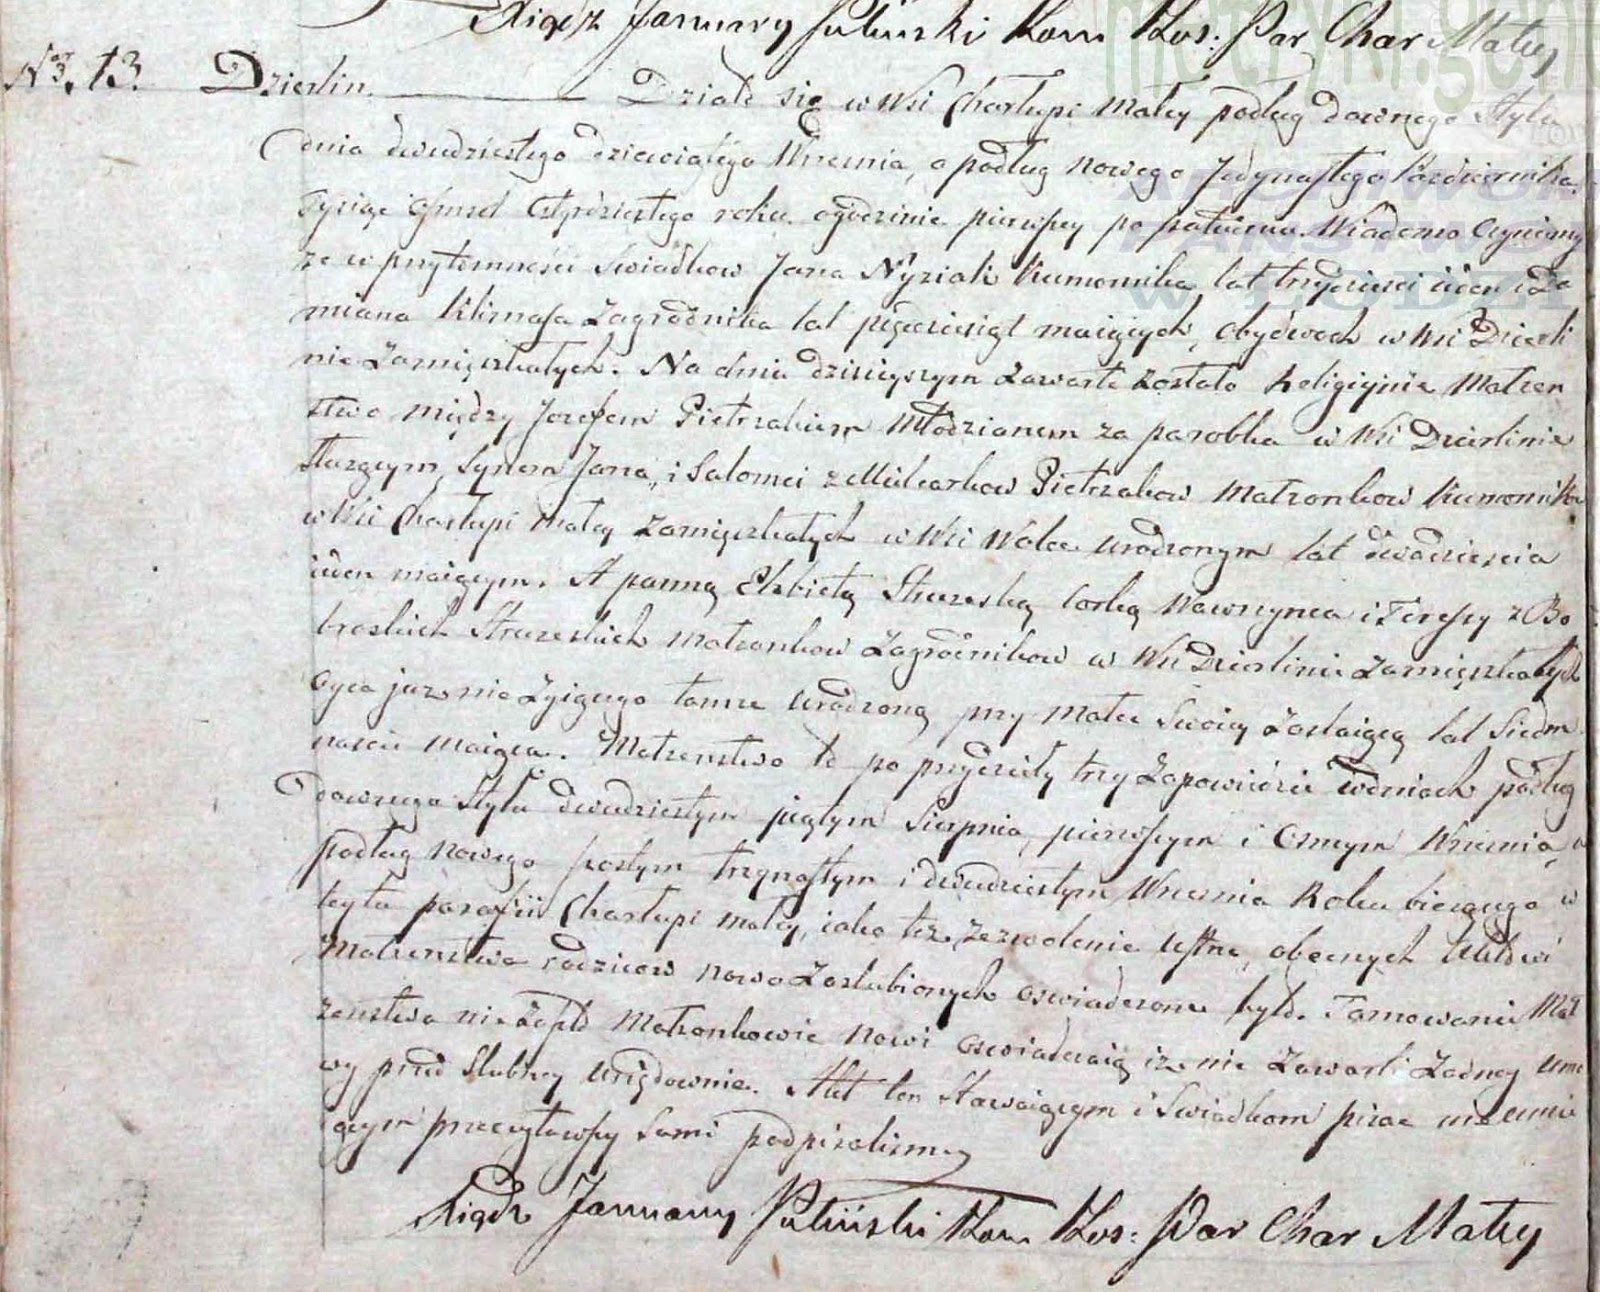 Xiądz January Puliński Kom Kos: Par Char Małey
Nro. 13. Dzierlin. Działo się w Wsi Charłupi małey podług dawnego Stylu
dnia dwudziestego dziewiątego Września, a podług nowego Jedynastego Października
Tysiąc Osmset Czterdziestego roku o godzinie pierwszey po południu. Wiadomo Czyniemy
ze w przytomności Swiadkow Jana Nyziak Kumornika, lat trzydzieści ieden i Da
miana Klimasa Zagrodnika lat pięcdziesiąt maiących, obydwoch w Wsi Dzierli
nie Zamięszkałych. Na dniu dzisieyszym Zawarte Zostało Religiyne Małzen
stwo między Jozefem Pietrzakiem Młodzianem za parobka w Wsi Dzierlinie
służącym, Synem Jana, i Salomei z Mulcarkow Pietrzakow Małzonkow Kumornikow
w Wsi Charłupi małey Zamięszkałych w Wsi Wolce urodzonym lat dwadzieścia
ieden maiącym. A panną Elzbietą Strurzeską Corką Wawrzynca i Teressy z Bo
broskich Strurzeskich Małzonkow Zagrodnikow w Wsi Dzierlinie Zamięszkałych
Oyca juz nie Zyiącego tamze urodzoną przy Matce Swoiey Zostaiącą lat Siedm
naście maiąca. Małzenstwo to po przedziły trzy Zapowiedzie w dniach podług
dawnego Stylu dwudziestym piątym Sierpnia, pierwszym i Osmym Września, a
podług nowego szostym trzynastym i dwudziestym Września Roku bieżącego w
teyto parafii Charłupi małey, iako tez Zezwolenie ustne, obecnych aktowi
Małzenstwa rodzicow nowo Zaslubionych oswiadczone było. Tamowanie Mał
zenstwa nie Zaszło Małzonkowie nowi oswiadczaią iz nie Zawarli Zadney umo
wy przed Slubney urzędownie. Akt ten Stawaiącym i Swiadkom pisac nie umie
iącym przeczytawszy Sami podpisalismy
Xiądz January Puliński Kom Kos: Par Char Małey